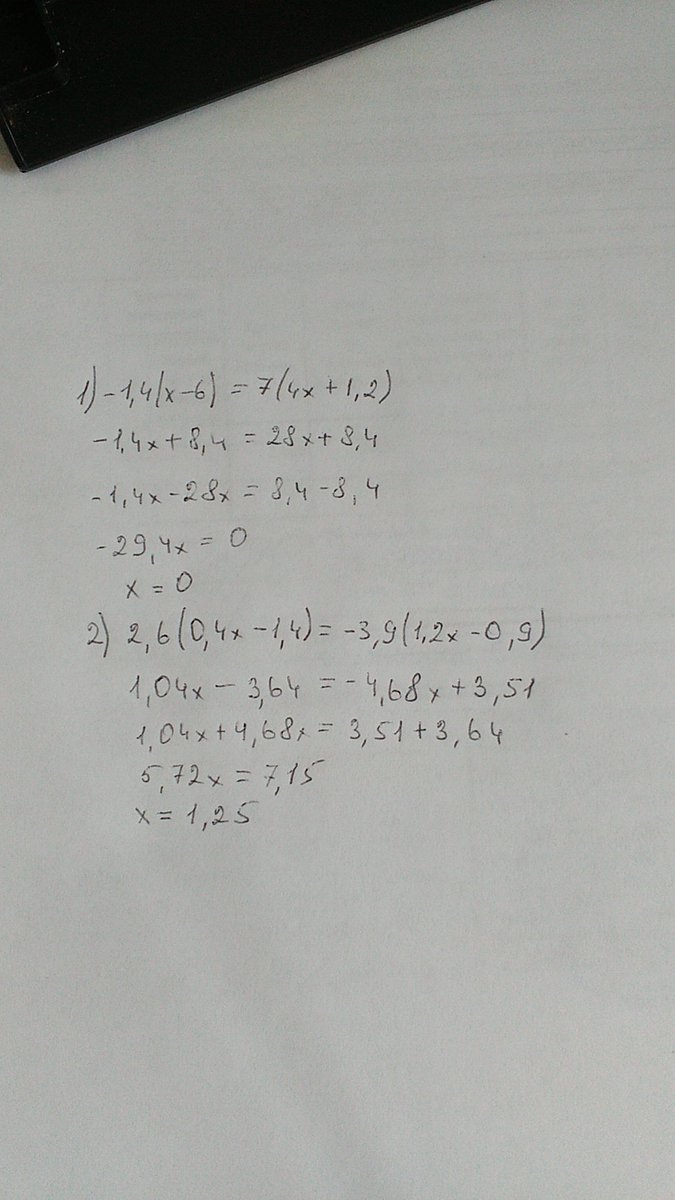 1) -1,4(x-6) = 7(4x+1,2)
-1,4x+8,4 = 28x+8,4
-1,4x-28x = 8,4-8,4
-29,4x = 0
x = 0
2) 2,6(0,4x-1,4) = -3,9(1,2x-0,9)
1,04x - 3,64 = -4,68x+3,51
1,04x+4,68x = 3,51+3,64
5,72x = 7,15
x = 1,25